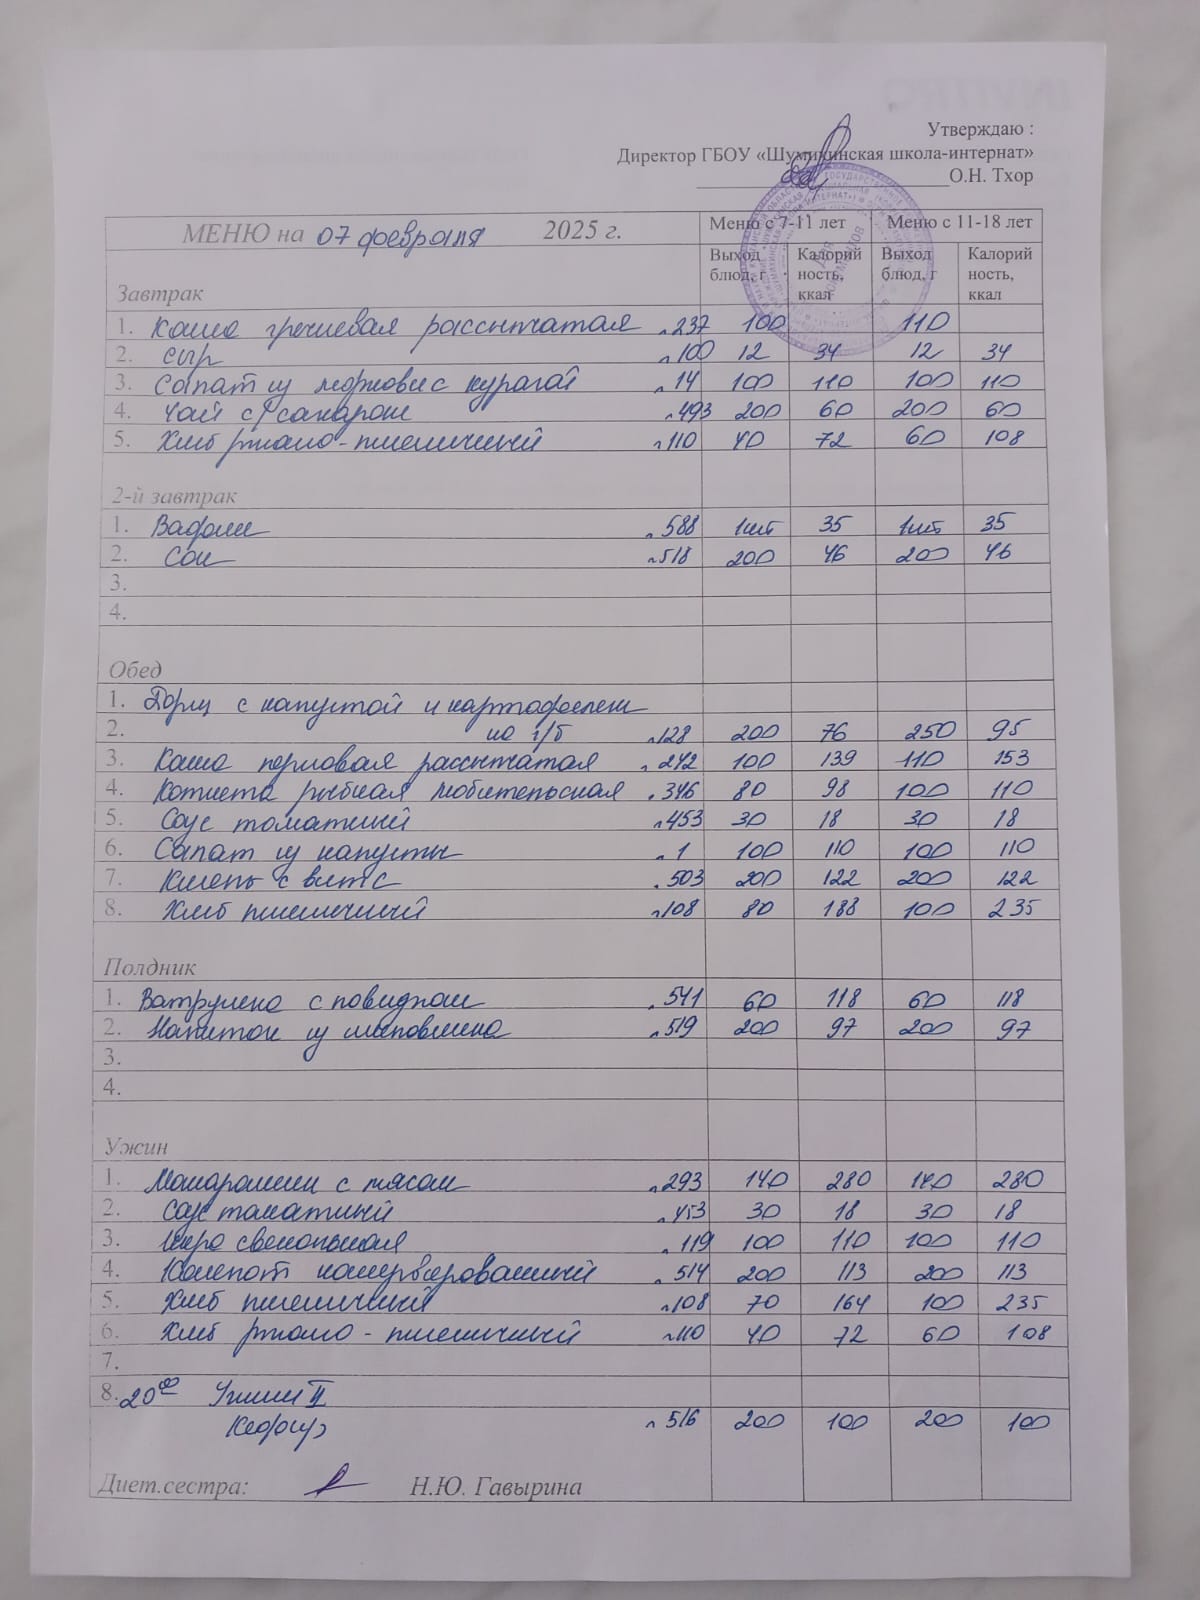 Утверждаю :
Директор ГБОУ «Шумихинская школа-интернат»
О.Н. Тхор
МЕНЮ на 07 февраля 2025 г. Меню с 7-11 лет Меню с 11-18 лет
Завтрак Выход блюд, г Калорий ность, ккал Выход блюд, г Калорий ность, ккал
1. Каша гречневая рассыпчатая 237 100 110
2. Сыр 100 12 34 12 34
3. Салат из моркови с курагой 14 100 110 100 110
4. Чай с сахаром 493 200 60 200 60
5. Хлеб ржано-пшеничный 110 40 72 60 108
2-й завтрак
1. Вафли 588 1шт 35 1шт 35
2. Сок 518 200 46 200 46
3.
4.
Обед
1. Борщ с капустой и картофелем
2. на г/б 128 200 76 250 95
3. Каша перловая рассыпчатая 242 100 139 110 153
4. Котлета рыбная любительская 346 80 98 100 110
5. Соус томатный 453 30 18 30 18
6. Салат из капусты 1 100 110 100 110
7. Кисель с вит С 503 200 122 200 122
8. Хлеб пшеничный 108 80 188 100 235
Полдник
1. Ватрушка с повидлом 541 60 118 60 118
2. Напиток из шиповника 519 200 97 200 97
3.
4.
Ужин
1. Макароники с мясом 293 140 280 140 280
2. Соус томатный 453 30 18 30 18
3. Икра свекольная 119 100 110 100 110
4. Компот консервированный 514 200 113 200 113
5. Хлеб пшеничный 108 70 164 100 235
6. Хлеб ржано-пшеничный 110 40 72 60 108
7.
8. 20 00 Ужин II
Кефир 516 200 100 200 100
Диет.сестра: Н.Ю. Гавырина